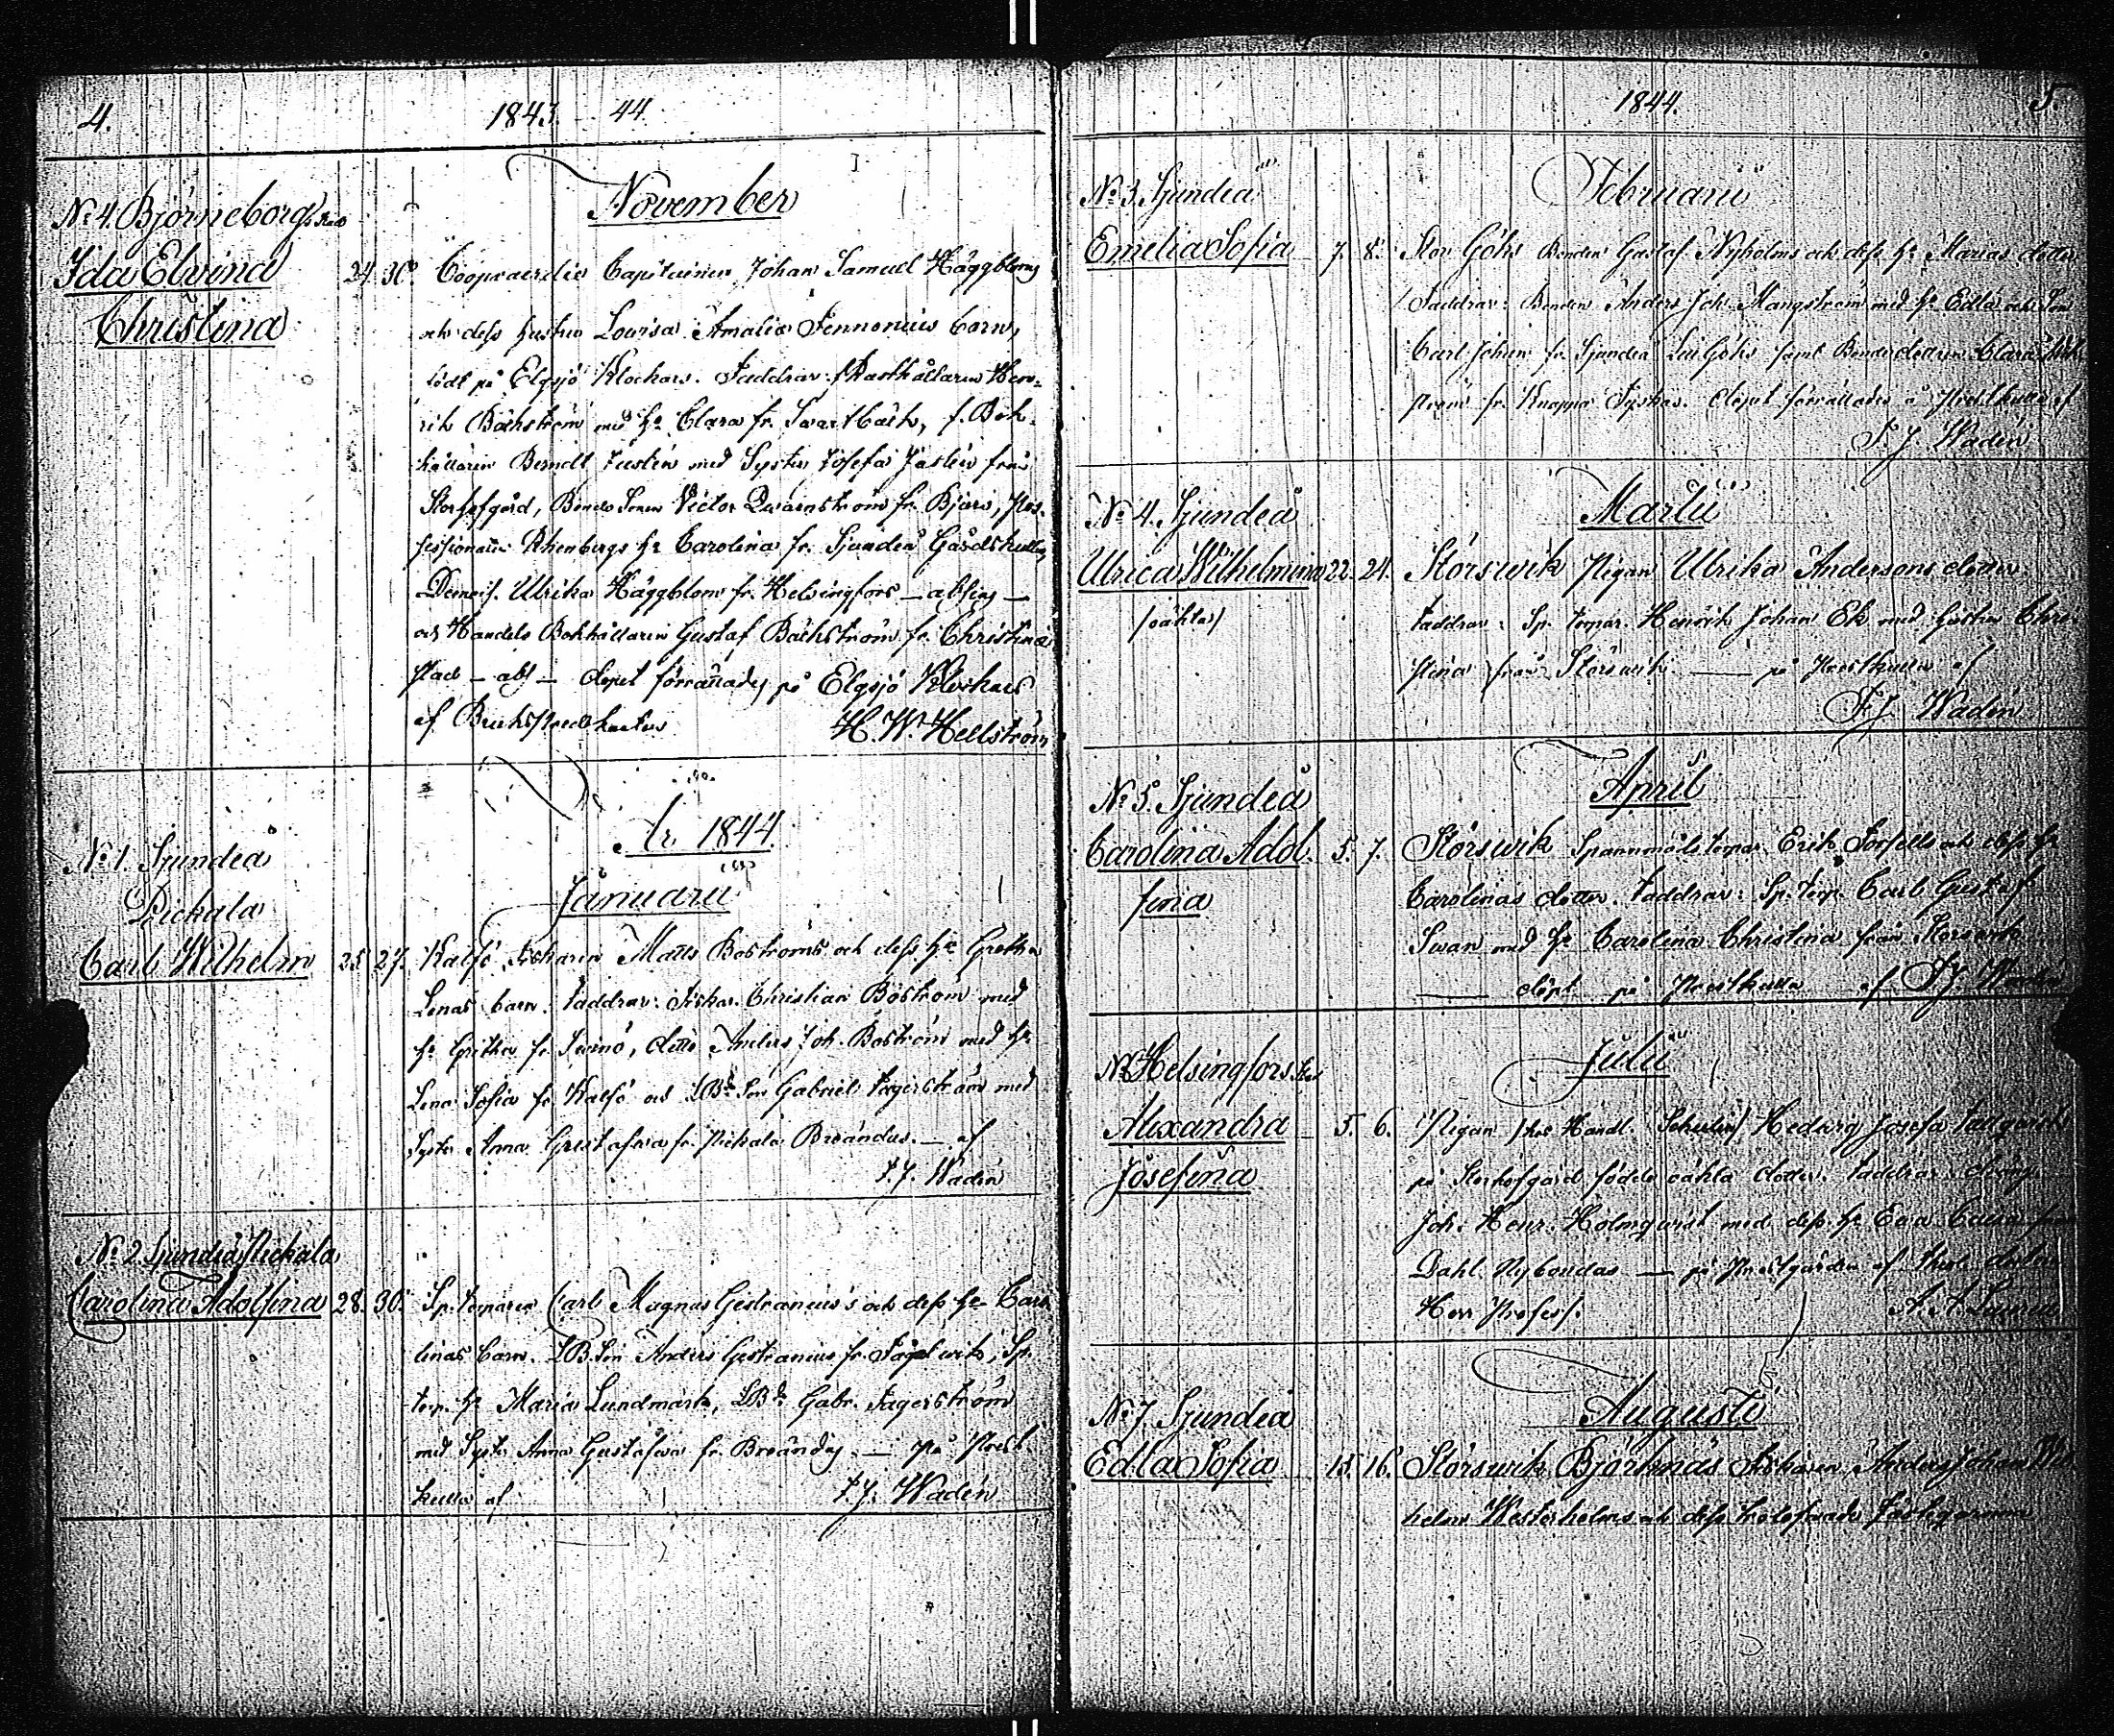 4.
1843. 44.
November
No 4. Björneborgs Stad
Ida Elvina 24. 30. Coopvaerdie Capitainen Johan Samuel Häggbloms
Christina
och dess hustru Lovisa Amalia Fennonius barn,
född på Elgsjö Klockars. Faddrar: Rusthållaren Hen-
rik Bäckström med h. Clara fr. Svartbäck, f. Bok-
hållaren Berndt Justén med Syster Josefa Justén från
Storhofgård, Bonde Sonen Victor Qvarnström fr. Bjärs,
Rhenbergs h. Carolina fr. Sjundeå Gårdskulla,
Demois. Ulrika Häggblom fr. Helsingfors — absens —
och Handels Bokhållaren Gustaf Bäckström fr. Christina
stad — abs — döpt förrättades på Elgsjö Klockars
af
H. W. Hellström
År 1844.
Januarii
No 1. Sjundeå
Pickala
Carl Wilhelm 25. 27. Kalfö Fiskaren Matts Boströms och dess h. Greta
Lenas barn. Faddrar: Fiskar. Christian Boström med
h. Gretha fr. Svinö, ditto Anders Joh. Boström med h.
Lena Sofia fr. Kalfö och LBd Son Gabriel Fagerström med
Syster Anna Gustafva fr. Pickala Broändas. — af
F. J. Wadén
No 2. Sjundeå Pickala
Carolina Adolfina 28. 30. Sp. torparen Carl Magnus Gestranius's och dess h. Caro
linas barn. LB. Son Anders Gestranius fr. Fågelvik, Sp.
torp. h. Maria Lundmark, LBd Gabr. Fagerström
med Syst. Anna Gustafva fr. Broändas — på Prest-
kulla af F. J. Wadén
1844.
5
Februarii
No 3. Sjundeå
Emelia Sofia 7. 8. Stor Göhs Bonden Gustaf Nyholms och dess h. Marias dotter
Faddrar: Bonden Anders Joh. Mangström med h. Edla och Son
Carl Johan fr. Sjundeå Göhs samt Bonde dottren Clara
ström fr. Knappa Tyskas. Döpet förrättades å Prestkulla af
F. J. Wadén
Martii
No 4. Sjundeå
Ulrica Wilhelmina 22. 24. Störsvik Pigan Ulrika Andersons dotter
/oäkta/
Faddrar: Sp. torpar. Henrik Johan Ek med hustru Chri-
stina från Störsvik — på Prestkulla af
F. J. Wadén
April
No 5. Sjundeå
Carolina Adol- 5. 7. Störsvik Spannmåls torpar. Erik Forsells och dess h.
fina
Carolinas dotter. Faddrar: Sp. torp. Carl Gustaf
Svan med h. Carolina Christina från Störsvik
— döpt på Prestkulla af F. J. Wadén
Julii
No Helsingfors Stad
Alexandra 5. 6. Pigan /hos Handl. / Hedvig Josefa
Josefina
på Storhofgård födda oäkta dotter. Faddrar: dräng.
Joh. Henr. Holmqvist med dess h. Eva Caisa från
Dahl Nybondas — på Prestgården af
Herr Profess.
Augusti
No 7. Sjundeå
Edla Sofia 15. 16. Störsvik Björknäs Fiskaren Anders Johan Wil-
helm Westerholms och dess trolofvade